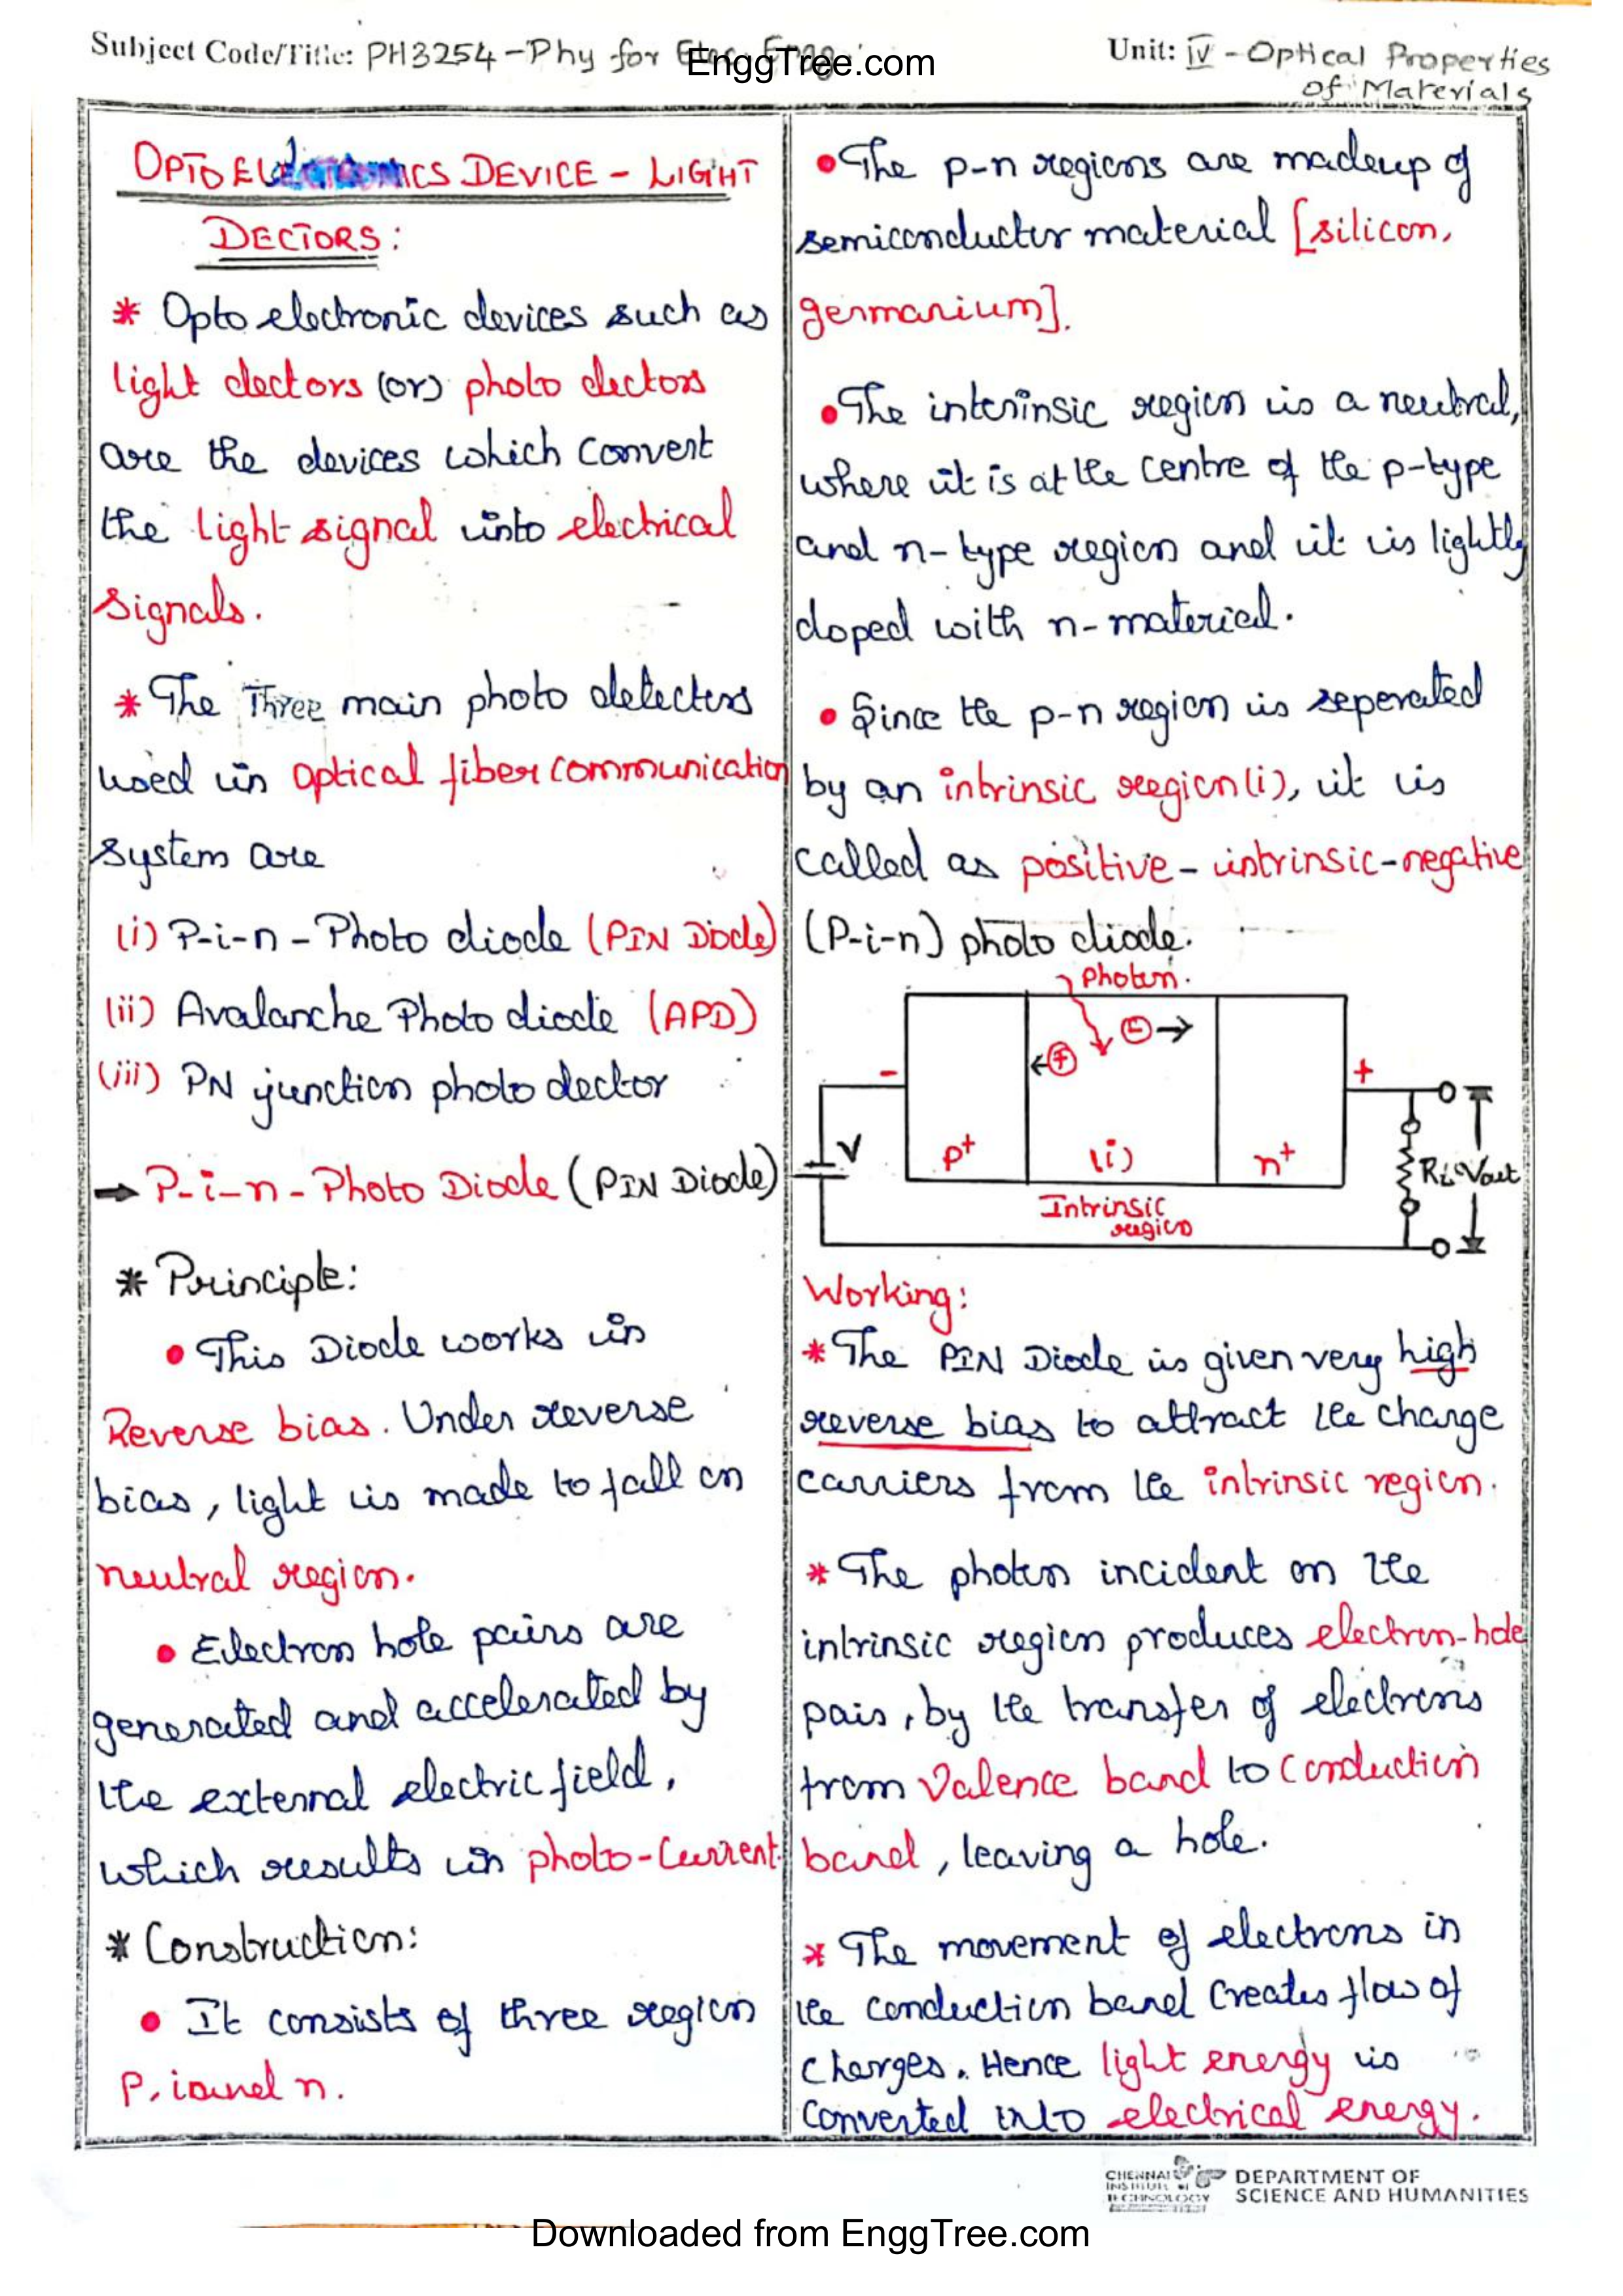 Subject Code/Title: PH3254-Phy for Elec. Engg.
EnggTree.com
Unit: IV - Optical Properties
of Materials
OPTO ELECTRONICS DEVICE - LIGHT
DECTORS:
* Opto electronic devices such as
light dectors (or) photo dectors
are the devices which convert
the light signal into electrical
signals.
* The Three main photo detectors
used in optical fiber communication
system are
(i) P-i-n - Photo diode (PIN Diode)
(ii) Avalanche Photo diode (APD)
(iii) PN junction photo dector
→ P-i-n - Photo Diode (PIN Diode)
* Principle:
• This Diode works in
Reverse bias. Under reverse
bias, light is made to fall on
neutral region.
• Electron hole pairs are
generated and accelerated by
the external electric field,
which results in photo-current.
* Construction:
• It consists of three region
P, i and n.
• The p-n regions are madeup of
semiconductor material [silicon,
germanium].
• The interinsic region is a neutral,
where it is at the centre of the p-type
and n-type region and it is lightly
doped with n-material.
• Since the p-n region is seperated
by an intrinsic region (i), it is
called as positive - intrinsic-negative
(P-i-n) photo diode.
Photon.
+ - →
- +
V
p+ (i) n+
RL Vout
Intrinsic
region
Working:
* The PIN Diode is given very high
reverse bias to attract the charge
carriers from the intrinsic region.
* The photon incident on the
intrinsic region produces electron-hole
pair, by the transfer of electrons
from Valence band to Conduction
band, leaving a hole.
* The movement of electrons in
the conduction band creates flow of
charges. Hence light energy is
converted into electrical energy.
CHENNAI
INSTITUTE OF
TECHNOLOGY
DEPARTMENT OF
SCIENCE AND HUMANITIES
Downloaded from EnggTree.com